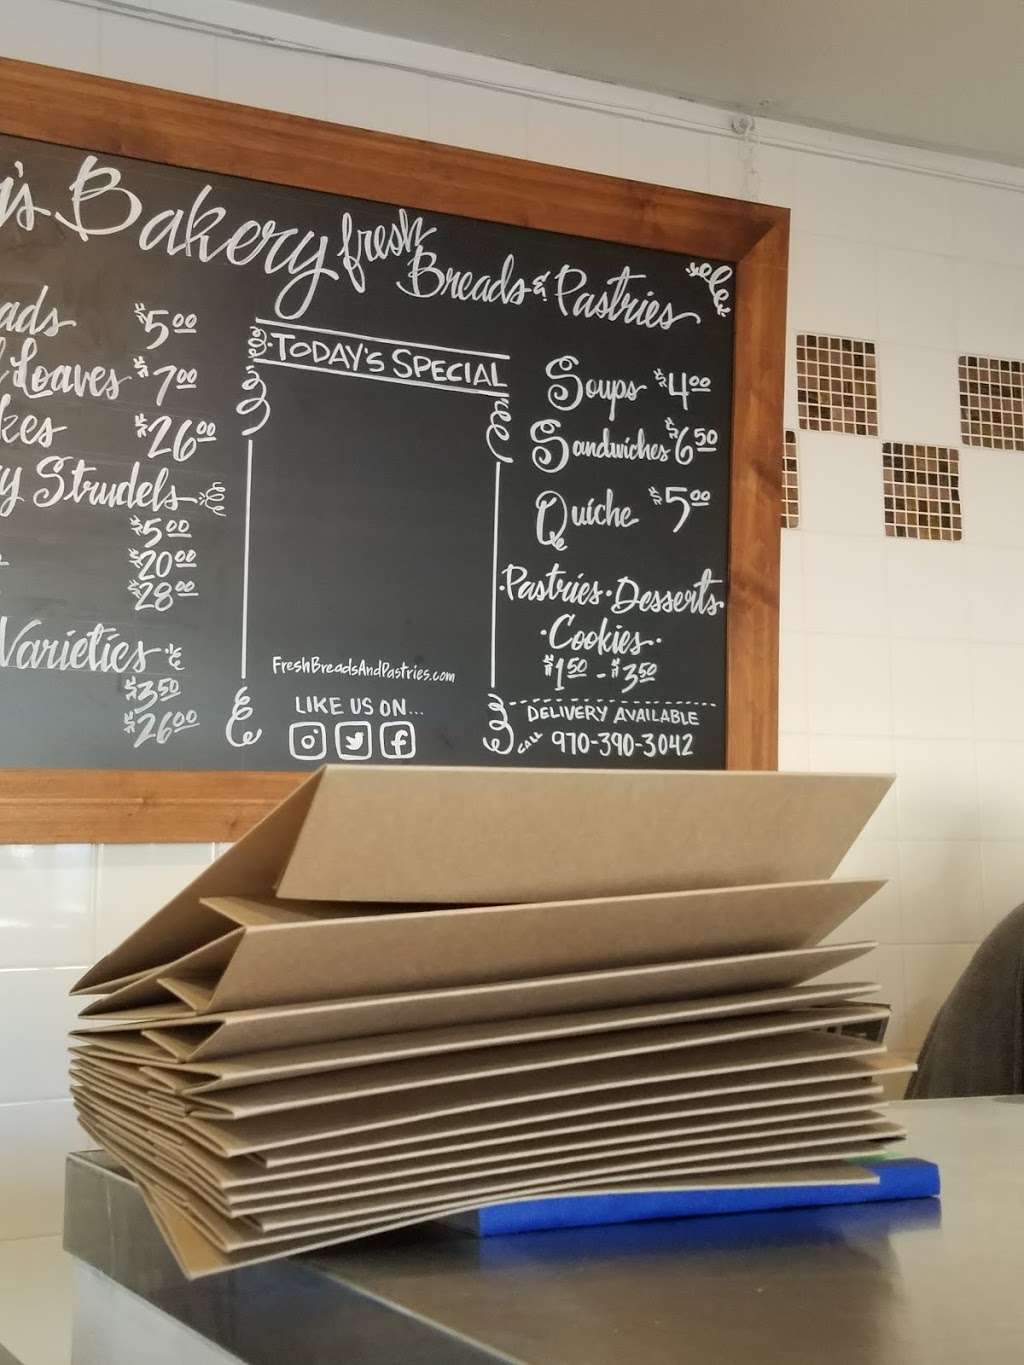 's Bakery fresh
Breads & Pastries
ads $5.00
Loaves $7.00
kes $26.00
y Strudels
$5.00
$20.00
$28.00
Varieties
$3.50
$26.00
TODAY'S SPECIAL
FreshBreadsAndPastries.com
LIKE US ON...
Soups $4.00
Sandwiches $6.50
Quiche $5.00
Pastries · Desserts
· Cookies ·
$1.50 - $3.50
DELIVERY AVAILABLE
CALL 970-390-3042